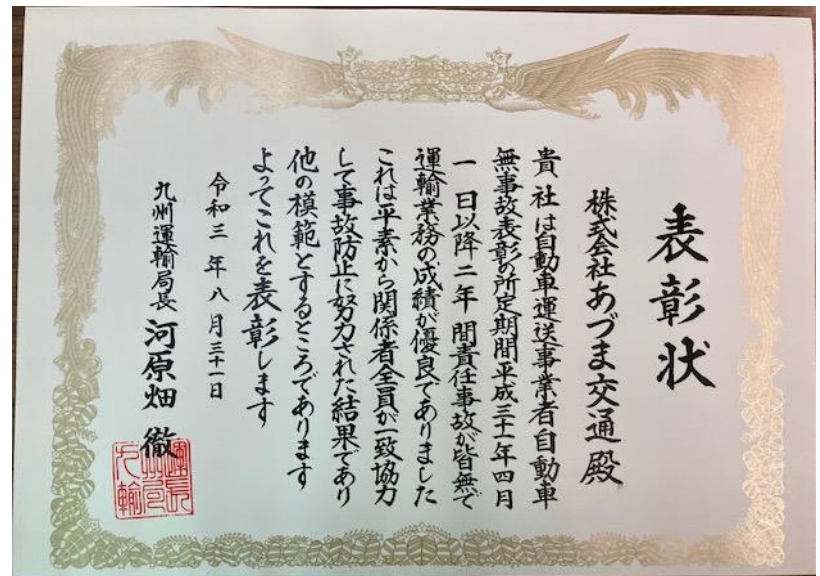 表彰状
株式会社あづま交通殿
貴社は自動車運送事業者自動車
無事故表彰の所定期間平成三十一年四月
一日以降二年間責任事故が皆無で
運輸業務の成績が優良でありました
これは平素から関係者全員が一致協力
して事故防止に努力された結果であり
他の模範とするところであります
よってこれを表彰します
令和三年八月三十一日
九州運輸局長 河原畑 徹